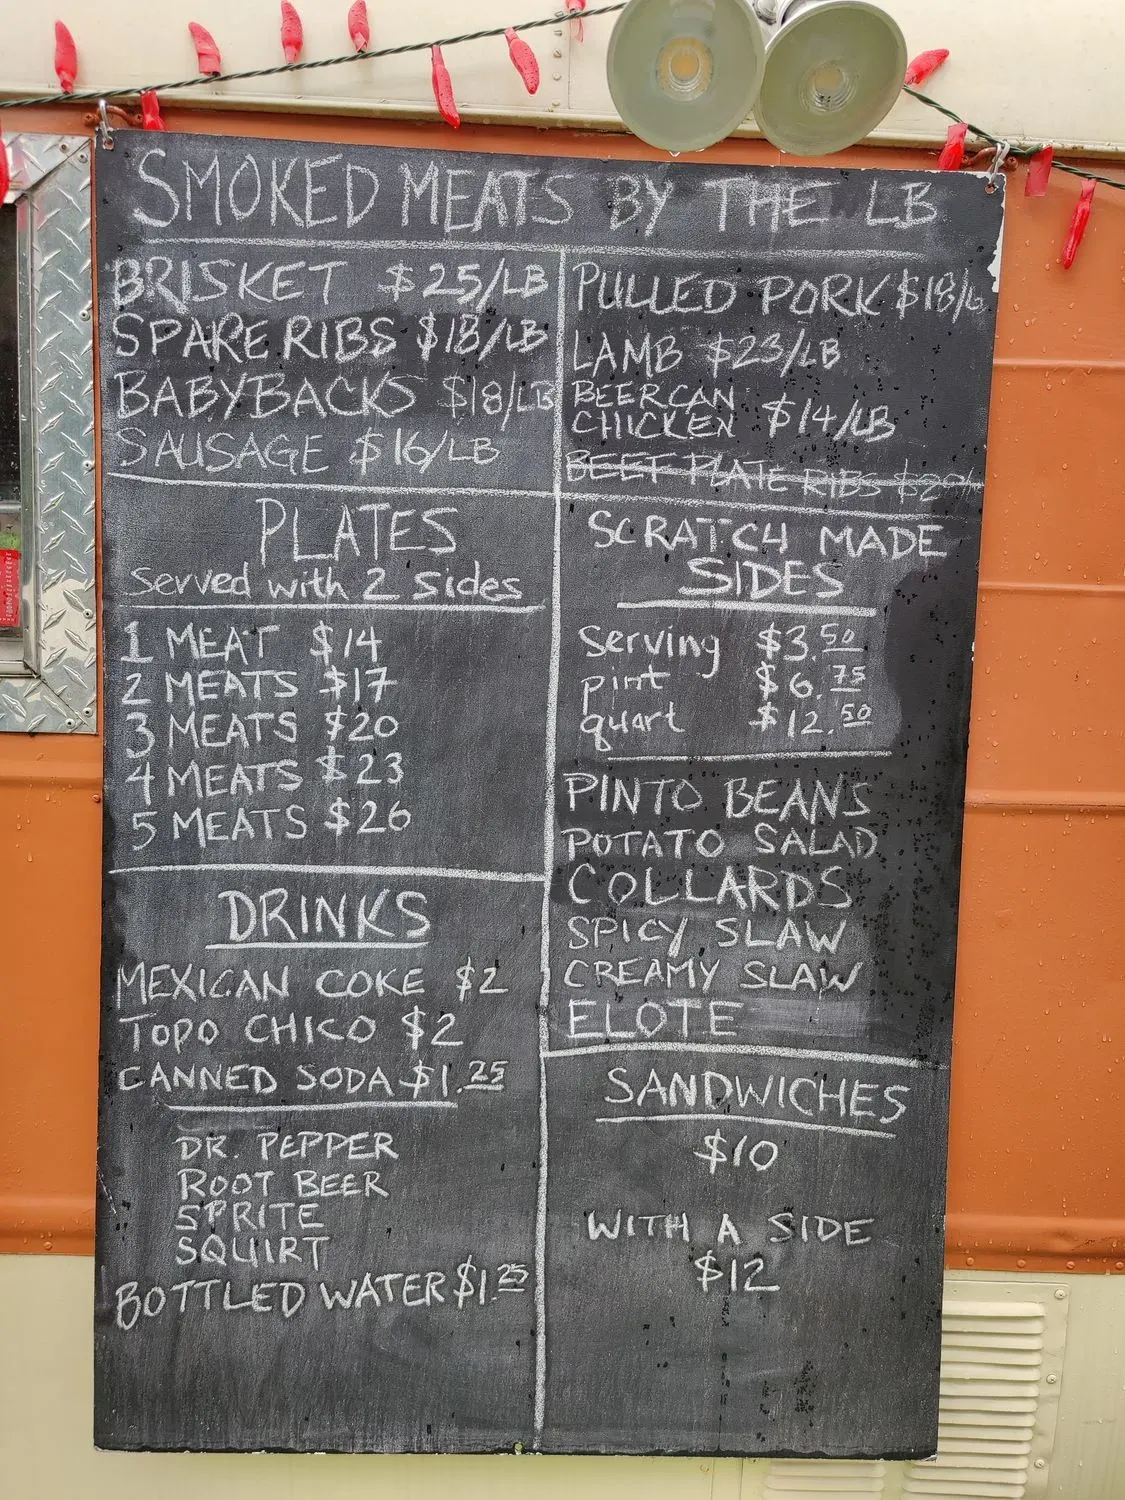 SMOKED MEATS BY THE LB
BRISKET $25/LB
SPARE RIBS $18/LB
BABYBACKS $18/LB
SAUSAGE $16/LB
PULLED PORK $18/LB
LAMB $23/LB
BEER CAN
CHICKEN $14/LB
BEEF PLATE RIBS
PLATES
Served with 2 sides
1 MEAT $14
2 MEATS $17
3 MEATS $20
4 MEATS $23
5 MEATS $26
SCRATCH MADE
SIDES
serving $3.50
pint $6.75
quart $12.50
PINTO BEANS
POTATO SALAD
COLLARDS
SPICY SLAW
CREAMY SLAW
ELOTE
DRINKS
MEXICAN COKE $2
TOPO CHICO $2
CANNED SODA $1.25
DR. PEPPER
ROOT BEER
SPRITE
SQUIRT
BOTTLED WATER $1.25
SANDWICHES
$10
WITH A SIDE
$12